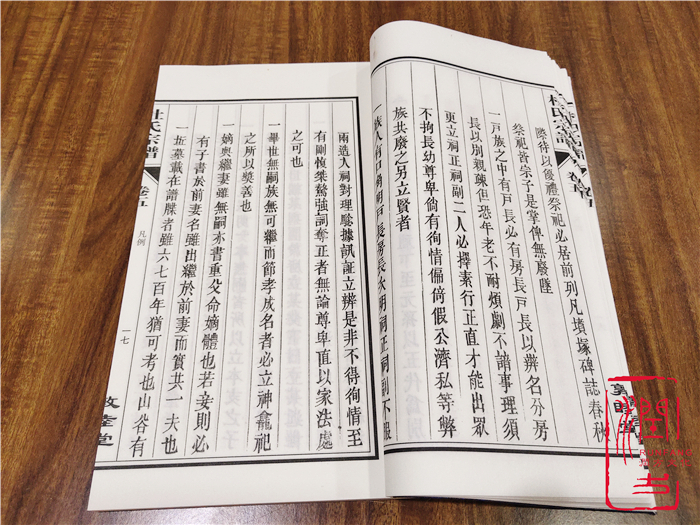 隆待以優禮祭祀必居前列凡墳塚碑誌春秋
祭祀皆宗子是掌俾無廢墜
一戸族之中有戸長必有房長戸長以辨名分房
長以別親疎但恐年老不耐煩劇不諳事理須
更立祠正祠副二人必擇素行正直才能出眾
不拘長幼尊卑倘有徇情偏倚假公濟私等弊
族共廢之另立賢者
一族人有口角明戸長房長次明祠正祠副不服
兩造入祠對理聡據訊証立辨是非不得徇情至
有剛愎桀驁強詞奪正者無論尊卑直以家法處
之可也
一畢世無嗣族無可繼而節孝成名者必立神龕祀
之所以獎善也
一嫡與繼妻雖無嗣亦書重父命嫡體也若妾則必
有子書於前妻名雖出繼於前妻而實共一夫也
一坵墓載在譜牒者雖六七百年猶可考也山谷有
杜氏宗譜
卷五
凡例
一七
敦睦堂